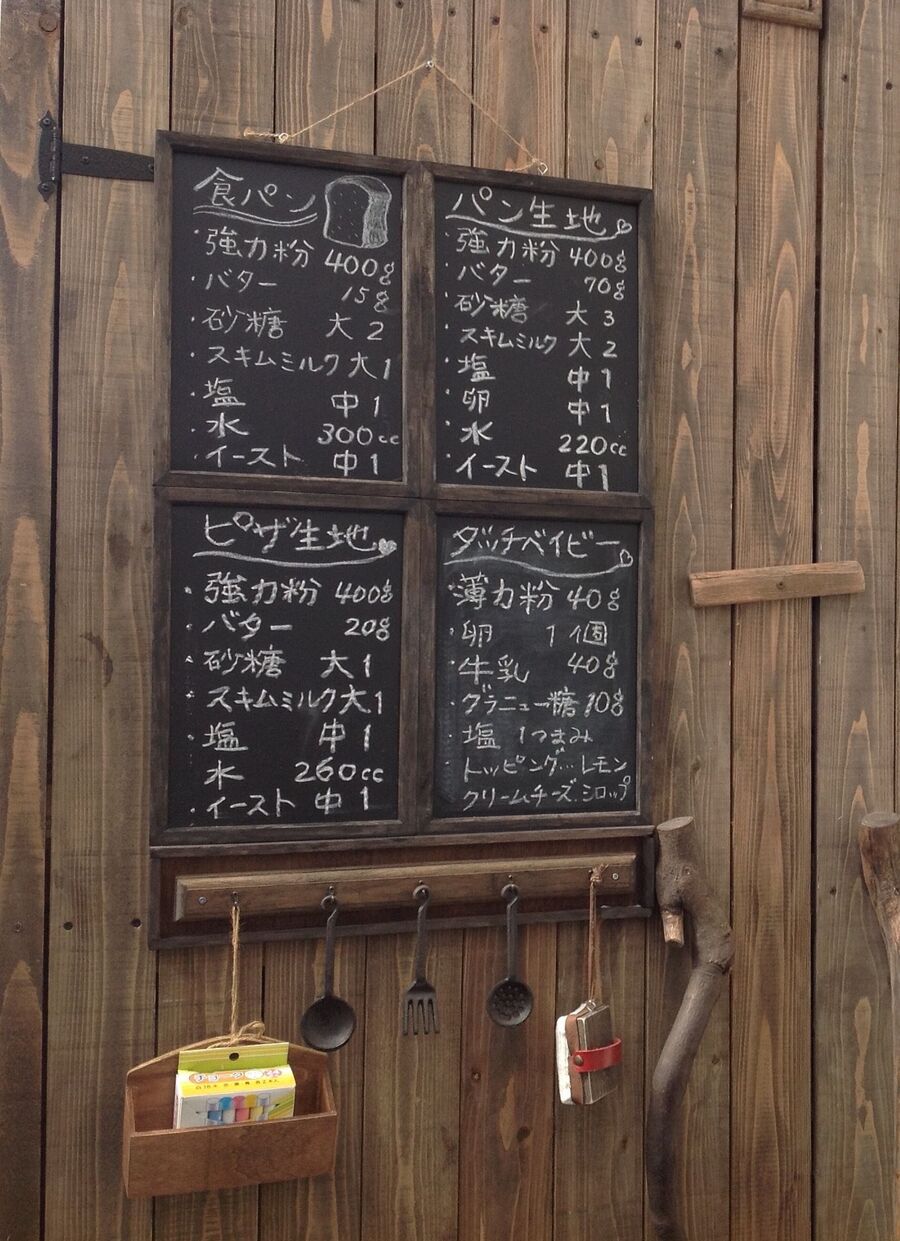 食パン
・強力粉 400g
・バター 15g
・砂糖 大2
・スキムミルク 大1
・塩 中1
・水 300cc
・イースト 中1
パン生地
・強力粉 400g
・バター 70g
・砂糖 大3
・スキムミルク 大2
・塩 中1
・卵 中1
・水 220cc
・イースト 中1
ピザ生地
・強力粉 400g
・バター 20g
・砂糖 大1
・スキムミルク 大1
・塩 中1
・水 260cc
・イースト 中1
ダッチベイビー
・薄力粉 40g
・卵 1個
・牛乳 40g
・グラニュー糖 10g
・塩 1つまみ
・トッピング…レモン
クリームチーズ.シロップ
チョーク